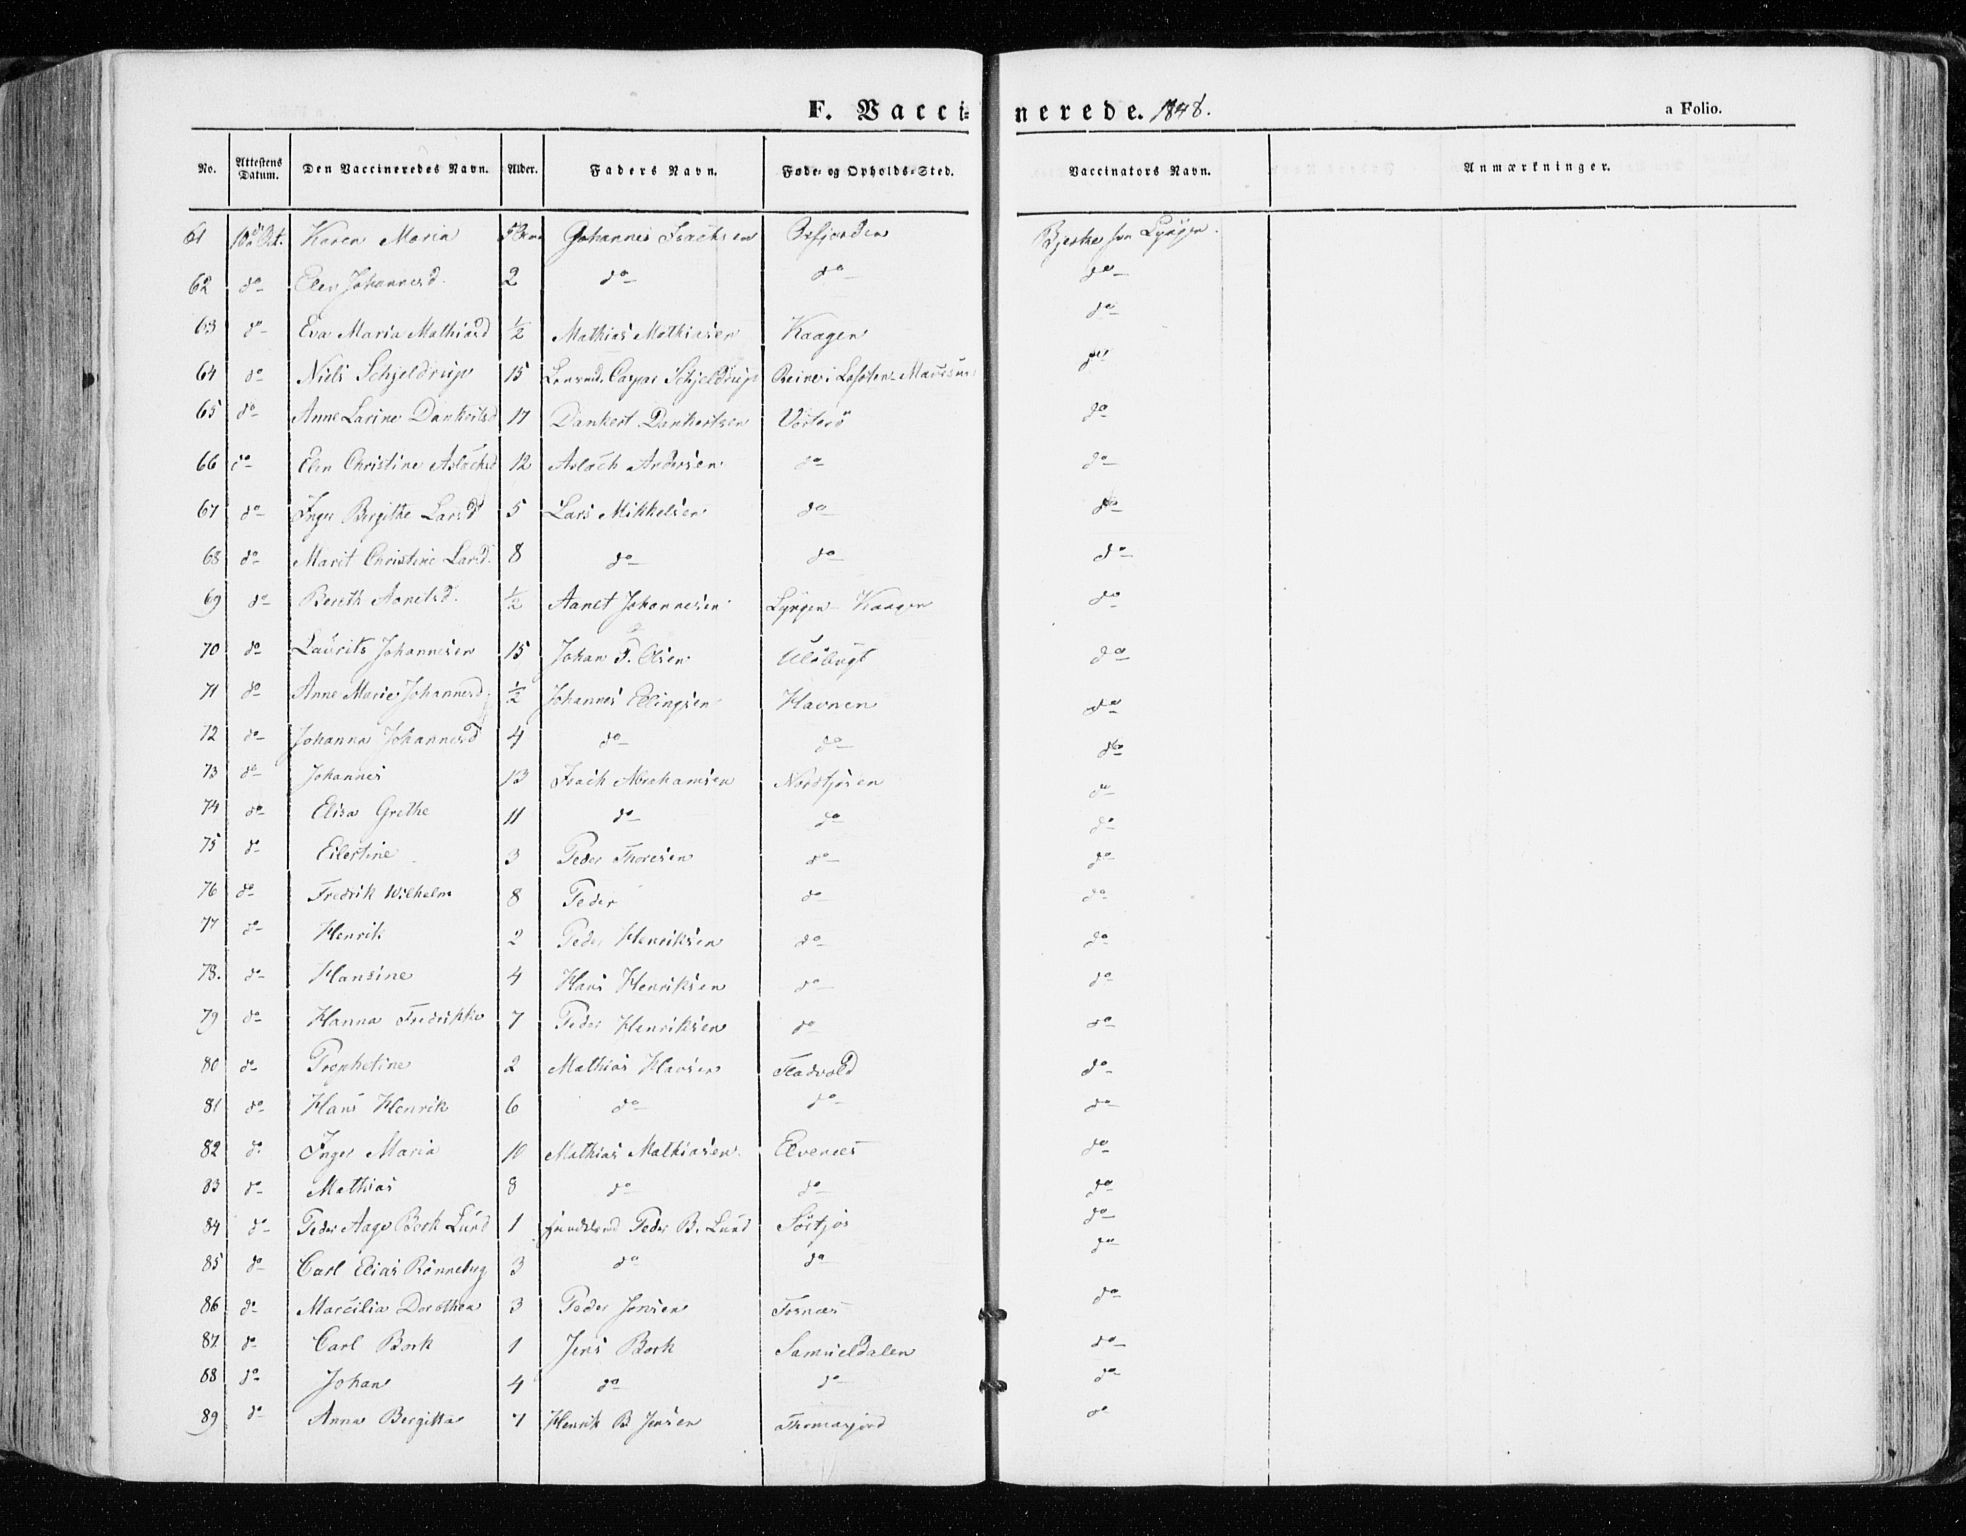 F. Vaccinerede. 1848.
a Folio.
No. Attestens Datum. Den Vaccineredes Navn. Alder. Faders Navn. Føde- og Opholds-Sted. Vaccinators Navn. Anmærkninger.
61 Oct. Karen Maria Johannes Isachsen Oxfjorden Bjerke fra Lyngen.
62 do Elen Johannesd. 2 do do do
63 do Eva Maria Mathiasd ½ Mathias Mathiasen Kaagen do
64 do Niels Schjeldrup 15 Lensmd. Caspar Schjeldrup Reine i Lofoten do
65 do Anne Larine Dankertsd 17 Dankert Dankertsen Vorterö do
66 do Elen Christine Aslachsd 12 Aslach Andersen do do
67 do Inger Bergithe Larsd 5 Lars Mikkelsen do do
68 do Marit Christine Larsd. 8 do do do
69 do Bereth Aanetsd. ½ Aanet Johannesen Lyngen Kaagen do
70 do Laurits Johannesen 15 Johan P. Olsen Ulsbugt do
71 do Anne Marie Johannesd ½ Johannes Ellingsen Havnen do
72 do Johanna Johannesd 4 do do do
73 do Johannes 13 Isach Abrahamsen Nordkjosen do
74 do Elisa Grethe 11 do do do
75 do Eilertine 3 Peder Thoresen do do
76 do Fredrik Wilhelm 8 Peder do do
77 do Henrik 2 Peder Henriksen do do
78. do Hansine 4 Hans Henriksen do do
79 do Hanna Fredrikke 7 Peder Henriksen do do
80 do Prophetine 2 Mathias Hansen Fladvold do
81 do Hans Henrik 6 do do do
82 do Inger Maria 10 Mathias Mathiasen Elvenæs do
83 do Mathias 8 do do do
84 do Peder Aage Bork Lund 1 Peder B. Lund Sörkjos do
85 do Carl Elias Rönneberg 3 do do do
86 do Marcilia Dorothea 3 Peder Jensen Fosnæs do
87 do Carl Bork 1 Jens Bork Samueldalen do
88 do Johan 4 do do do
89 do Anna Bergitta 7 Henrik B Jensen Thomasjord do